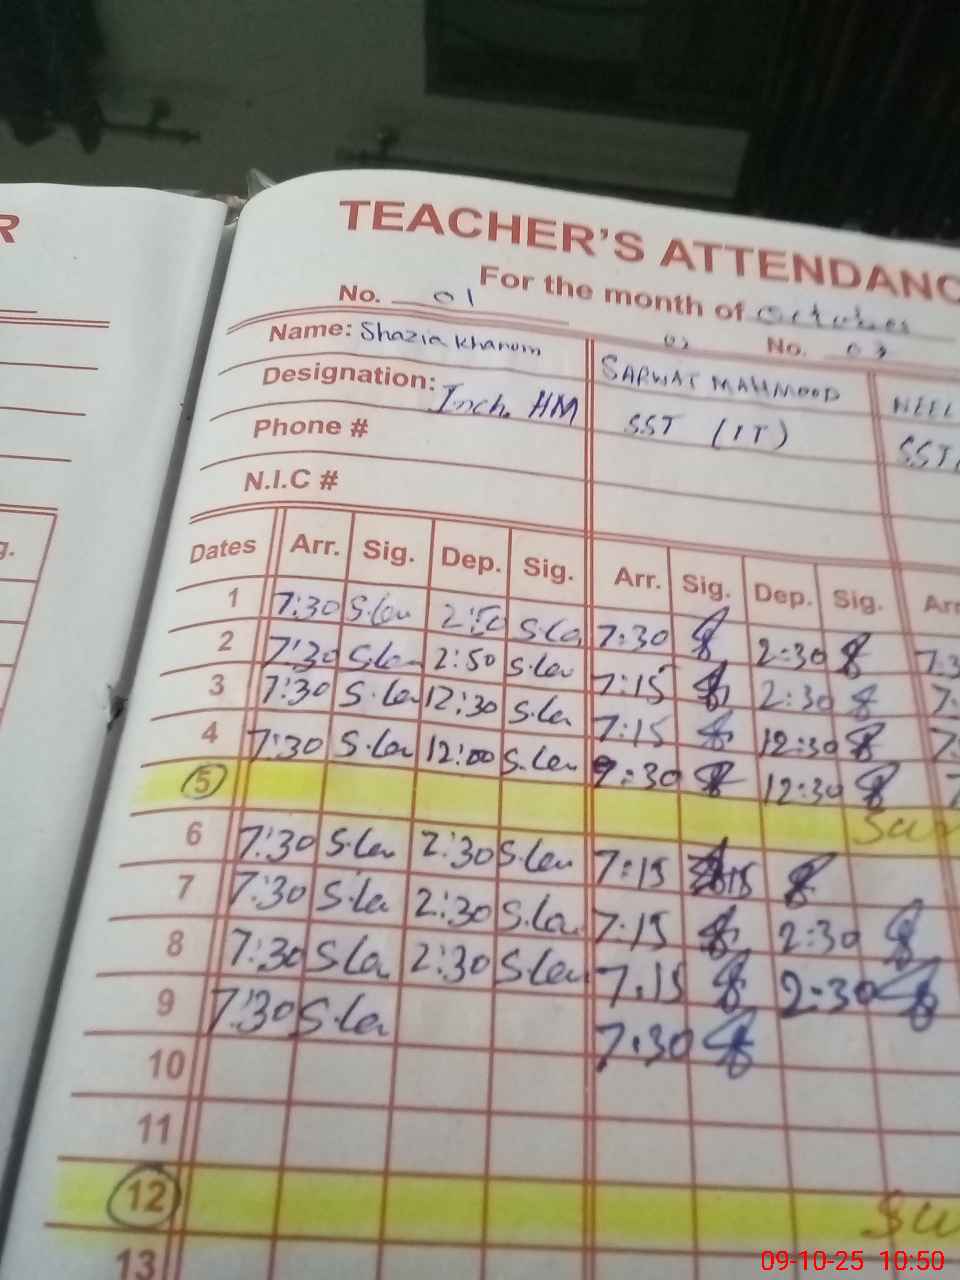 R
TEACHER'S ATTENDANC
For the month of October
No. 01 02 No. 03
Name: Shazia Khanum SARWAT MAHMOOD NEEL
Designation: Inch. HM SST (IT) SST
Phone #
N.I.C #
g.
Dates Arr. Sig. Dep. Sig. Arr. Sig. Dep. Sig. Arr
1 7:30 2:50 7:30 2:30 7:3
2 7:30 2:50 7:15 2:30 7:
3 7:30 12:30 7:15 12:30 7:
4 7:30 12:00 12:30 7
5 Sun
6 7:30 2:30 7:15
7 7:30 2:30 7:15 2:30
8 7:30 2:30 7:15 2:30
9 7:30 7:30
10
11
12 Su
13
09-10-25 10:50